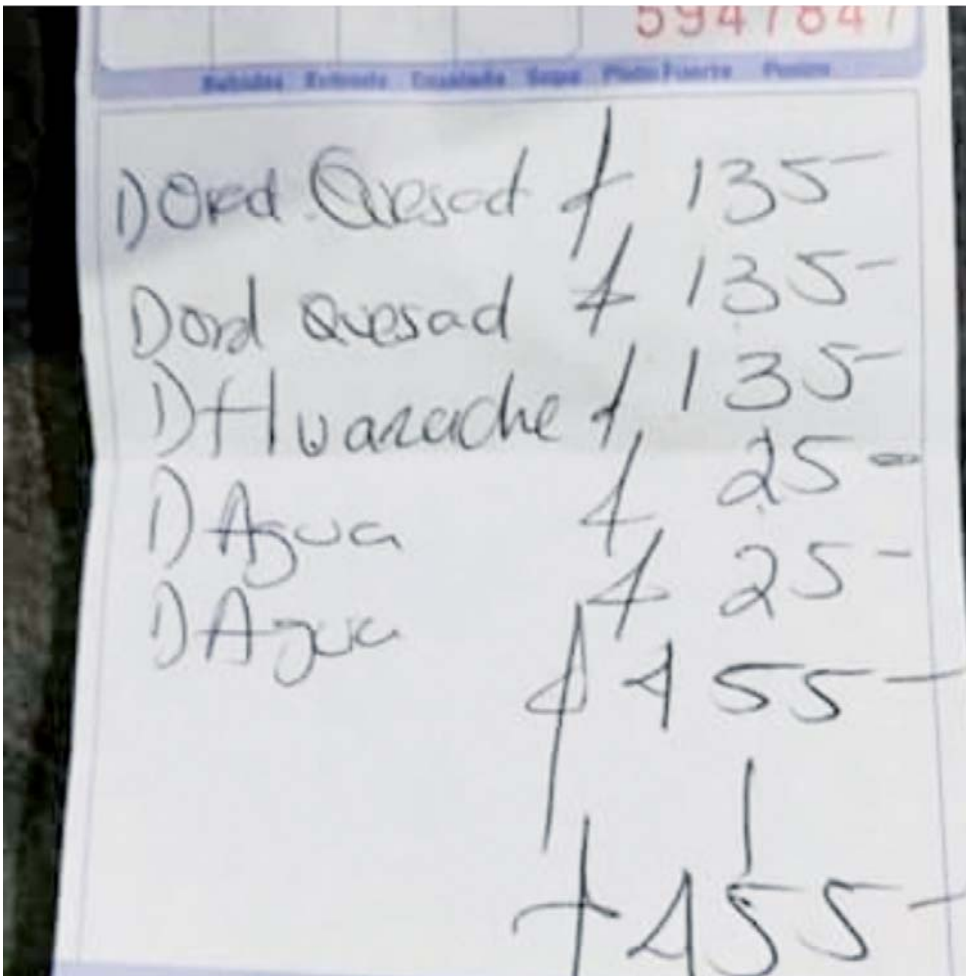 5947847
Bebidas Entrada Ensalada Sopa Plato Fuerte Postre
1) Ord. Quesad $ 135-
1) Ord Quesad $ 135-
1) Huarache $ 135-
1) Agua $ 25-
1) Agua $ 25-
$ 455-
$ 455-